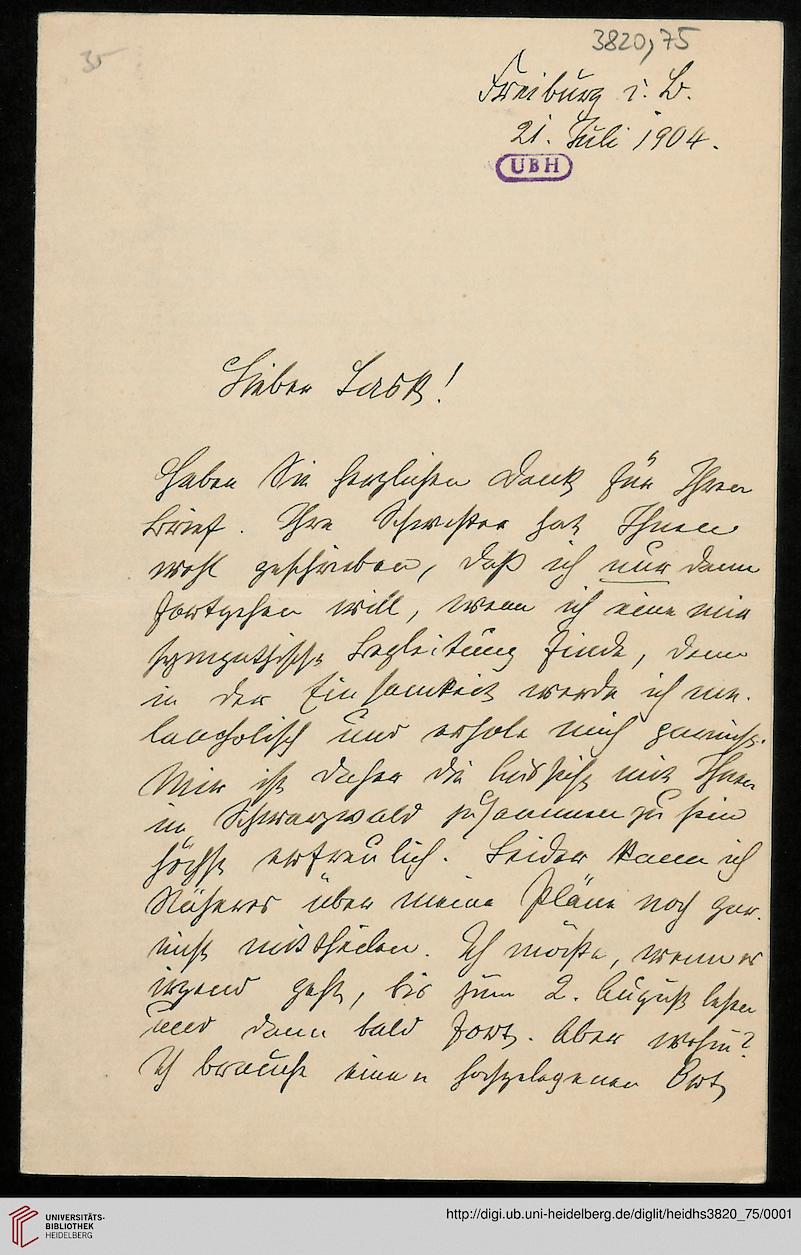 35
3820,75
Freiburg i. B.
21. Juli 1904.
UBH
Lieber Lask!
Haben Sie herzlichen Dank für Ihren
Brief. Ihre Schwester hat Ihnen
wohl geschrieben, daß ich nur dann
fortgehen will, wenn ich eine mir
sympathische Begleitung finde, denn
in der Einsamkeit werde ich me-
lancholisch und erhole mich garnicht.
Mir ist daher die Aussicht mit Ihnen
im Schwarzwald zusammen zu sein
höchst erfreulich. Leider kann ich
Näheres über meine Pläne noch gar-
nicht mittheilen. Ich möchte, wenn es
irgend geht, bis zum 2. August lesen
und dann bald fort. Aber wohin?
Ich brauche einen hochgelegenen Ort,
UNIVERSITÄTS-
BIBLIOTHEK
HEIDELBERG
http://digi.ub.uni-heidelberg.de/diglit/heidhs3820_75/0001